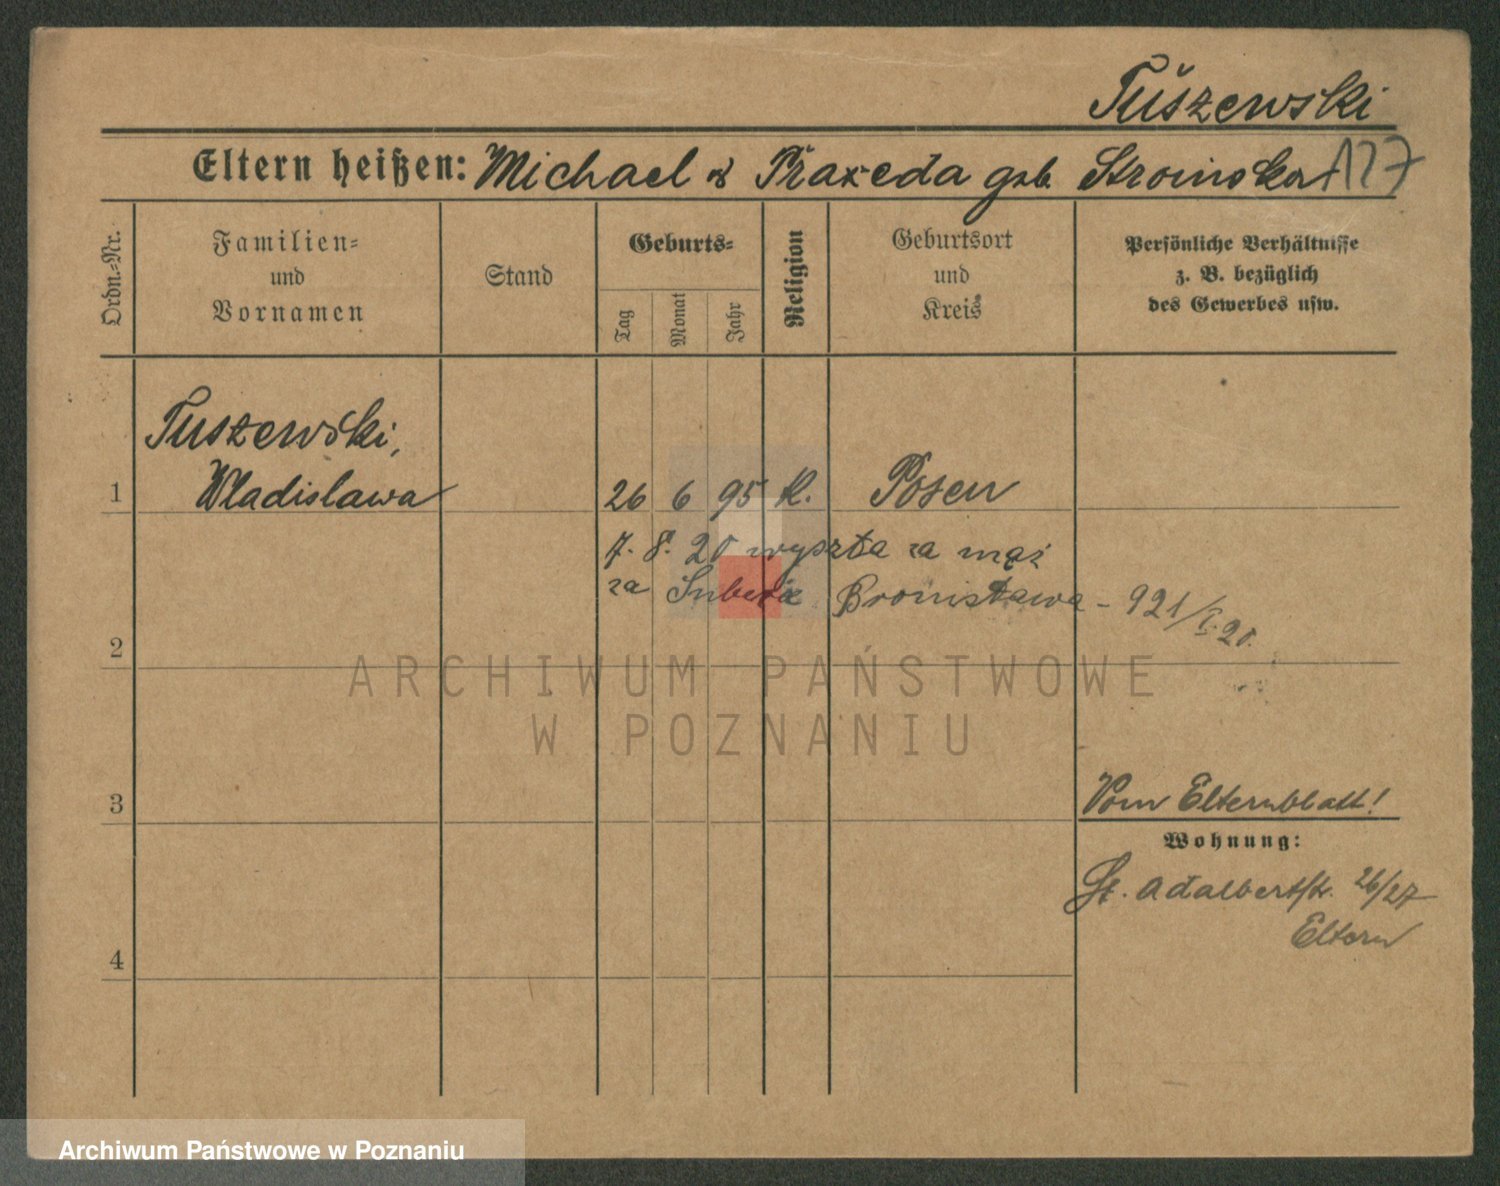 Tuszewski
Eltern heißen: Michael u Praxeda geb. Stroinska 127
Ordn.-Nr.
Familien-
und
Vornamen
Stand
Geburts-
Tag
Monat
Jahr
Religion
Geburtsort
und
Kreis
Persönliche Verhältnisse
z. B. bezüglich
des Gewerbes usw.
Tuszewski,
1 Wladislawa 26 6 95 k. Posen
7. 8. 20 wyszła za mąż
za Bronisława - 921/I.20.
2
ARCHIWUM PAŃSTWOWE
W POZNANIU
3
Vom Elternblatt!
Wohnung:
St. Adalbertstr. 26/27
Eltern
4
Archiwum Państwowe w Poznaniu